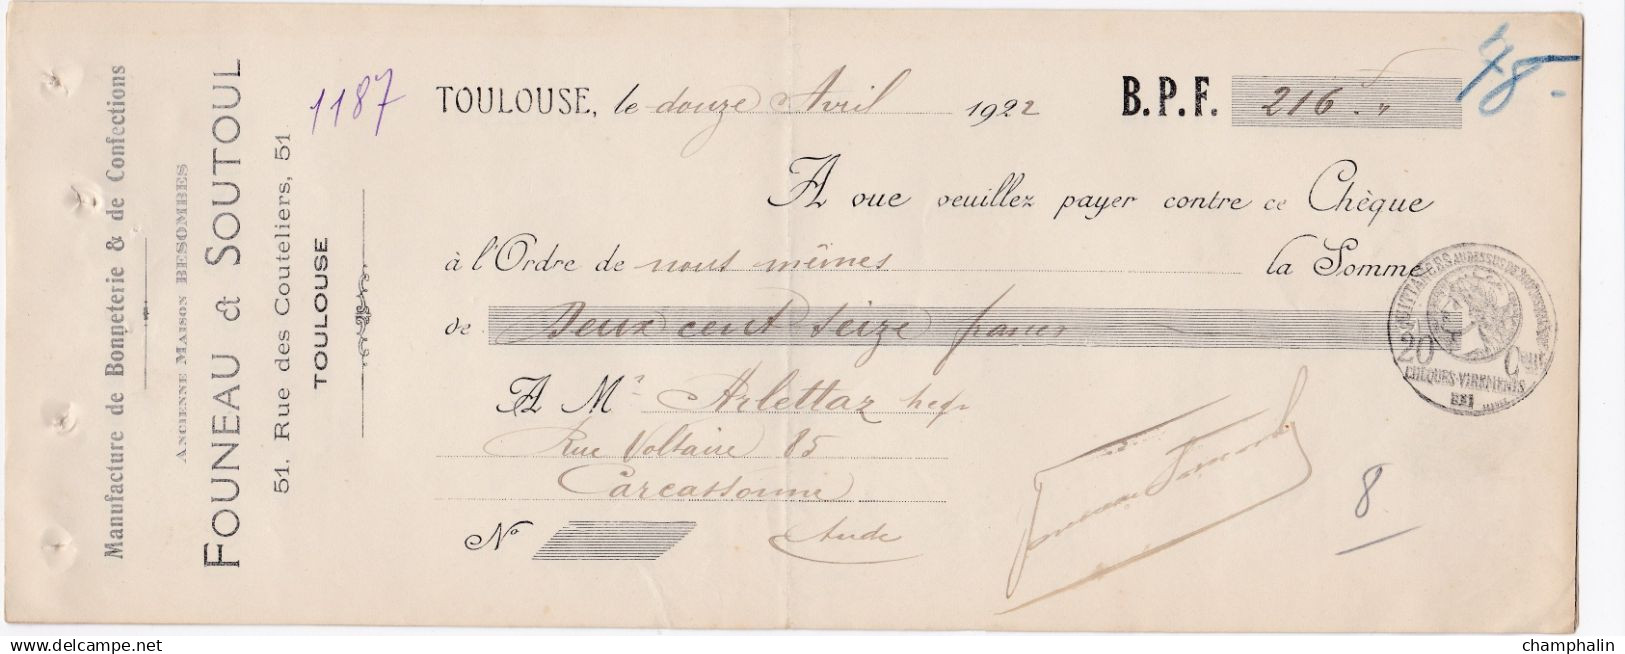 Manufacture de Bonneterie & de Confections
ANCIENNE MAISON BESOMBES
FOUNEAU & SOUTOUL
51, Rue des Couteliers, 51
TOULOUSE
1187
TOULOUSE, le douze Avril 1922 B.P.F. 216
78
A vue veuillez payer contre ce Chèque
à l'Ordre de nous mêmes la Somme
de Deux cent seize francs
A Mr Arlettaz
Rue Voltaire 85
Carcassonne
No Aude
8
QUITTANCES AU DESSUS DE
20 C
CHEQUES-VIREMENTS
delcampe.net
champhalin